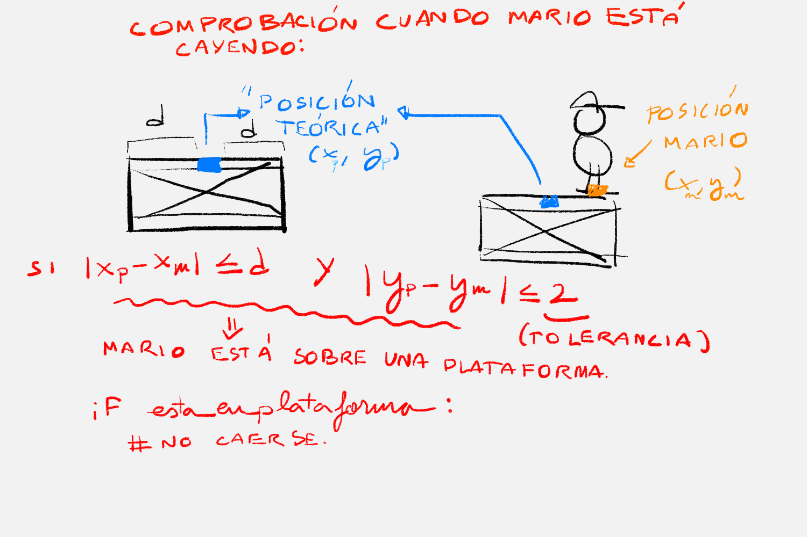 COMPROBACIÓN CUANDO MARIO ESTÁ
CAYENDO:
d
d
"POSICIÓN
TEÓRICA"
(xp, yp)
POSICIÓN
MARIO
(xm, ym)
SI |xp-xm| ≤ d Y |yp-ym| ≤ 2
(TOLERANCIA)
⇓
MARIO ESTÁ SOBRE UNA PLATAFORMA.
iF esta_en_plataforma:
# NO CAERSE.